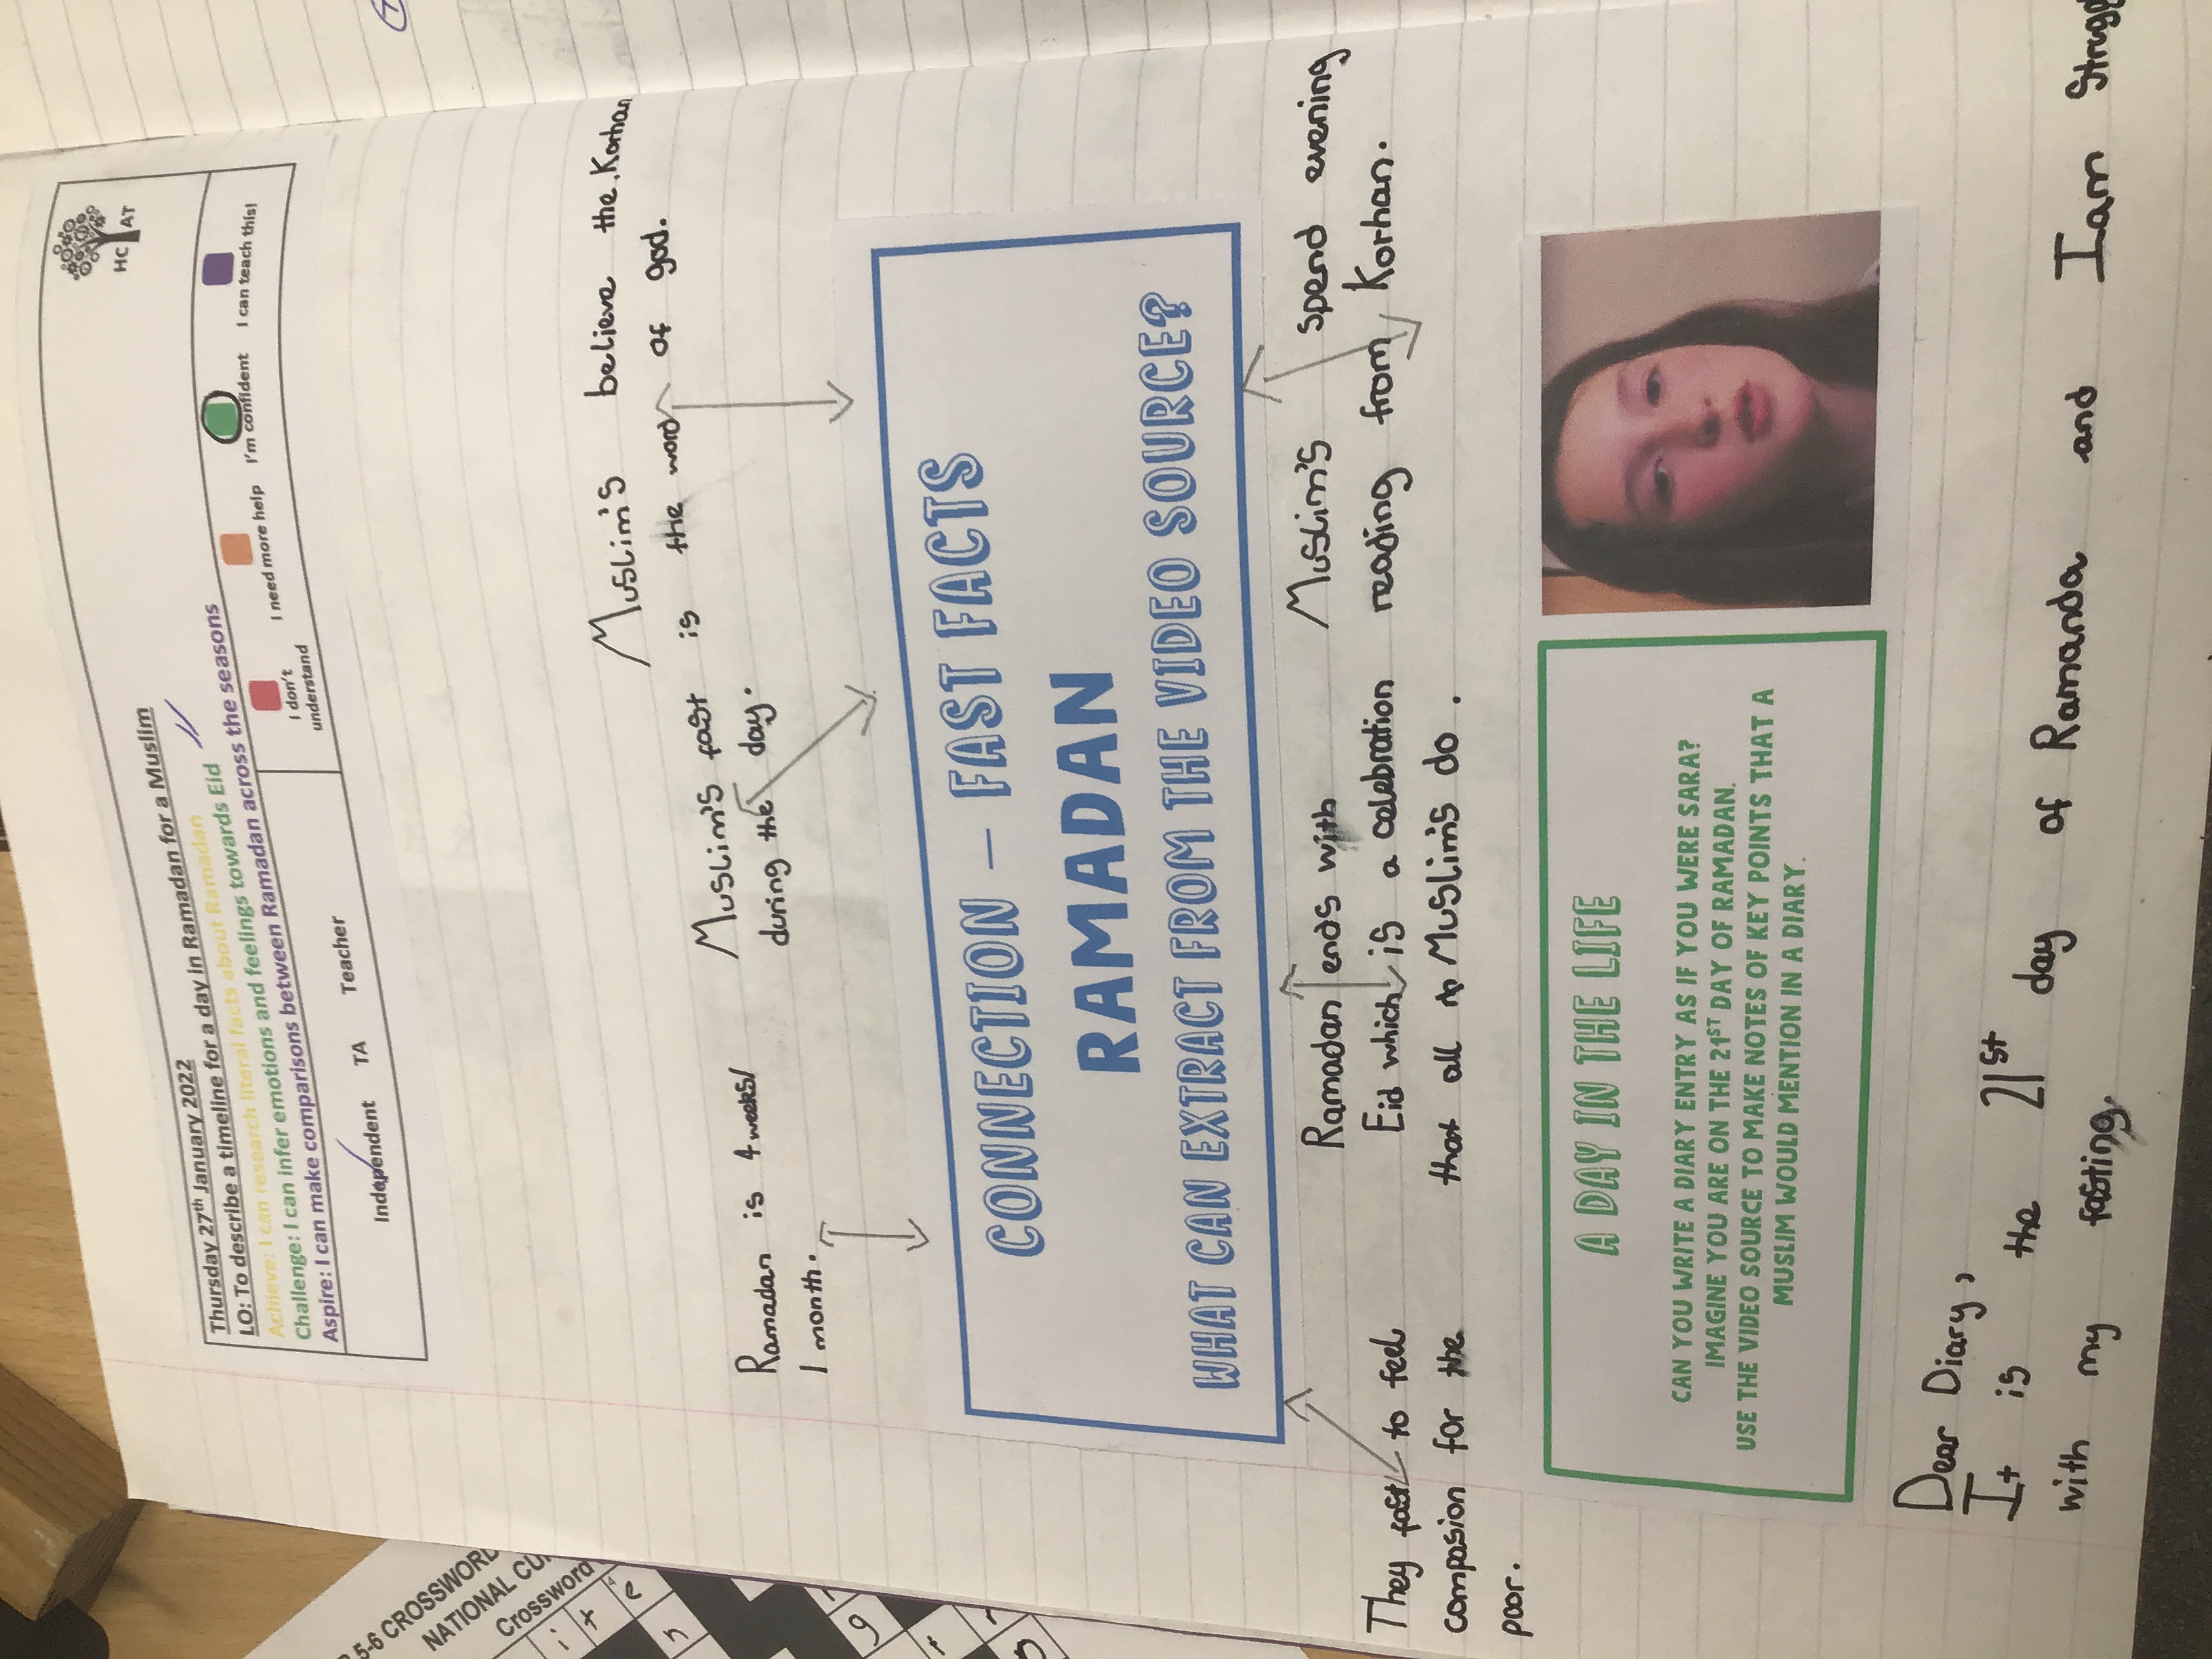 Thursday 27th January 2022
LO: To describe a timeline for a day in Ramadan for a Muslim
Achieve: I can research literal facts about Ramadan
Challenge: I can infer emotions and feelings towards Eid
Aspire: I can make comparisons between Ramadan across the seasons
HC AT
Independent TA Teacher
I don't understand
I need more help
I'm confident
I can teach this!
Muslim's believe the Korhan
is the word of god.
Muslim's fast
during the day.
Ramadan is 4 weeks/
1 month.
CONNECTION – FAST FACTS
RAMADAN
WHAT CAN EXTRACT FROM THE VIDEO SOURCE?
They fast to feel
compasion for the
poor.
Ramadan ends with
Eid which is a celebration
that all Muslims do.
Muslim's spend evening
reading from Korhan.
A DAY IN THE LIFE
CAN YOU WRITE A DIARY ENTRY AS IF YOU WERE SARA?
IMAGINE YOU ARE ON THE 21ST DAY OF RAMADAN.
USE THE VIDEO SOURCE TO MAKE NOTES OF KEY POINTS THAT A
MUSLIM WOULD MENTION IN A DIARY.
Dear Diary,
It is the 21st day of Ramanda and I am
with my fasting.
5-6 CROSSWORD
NATIONAL
Crossword